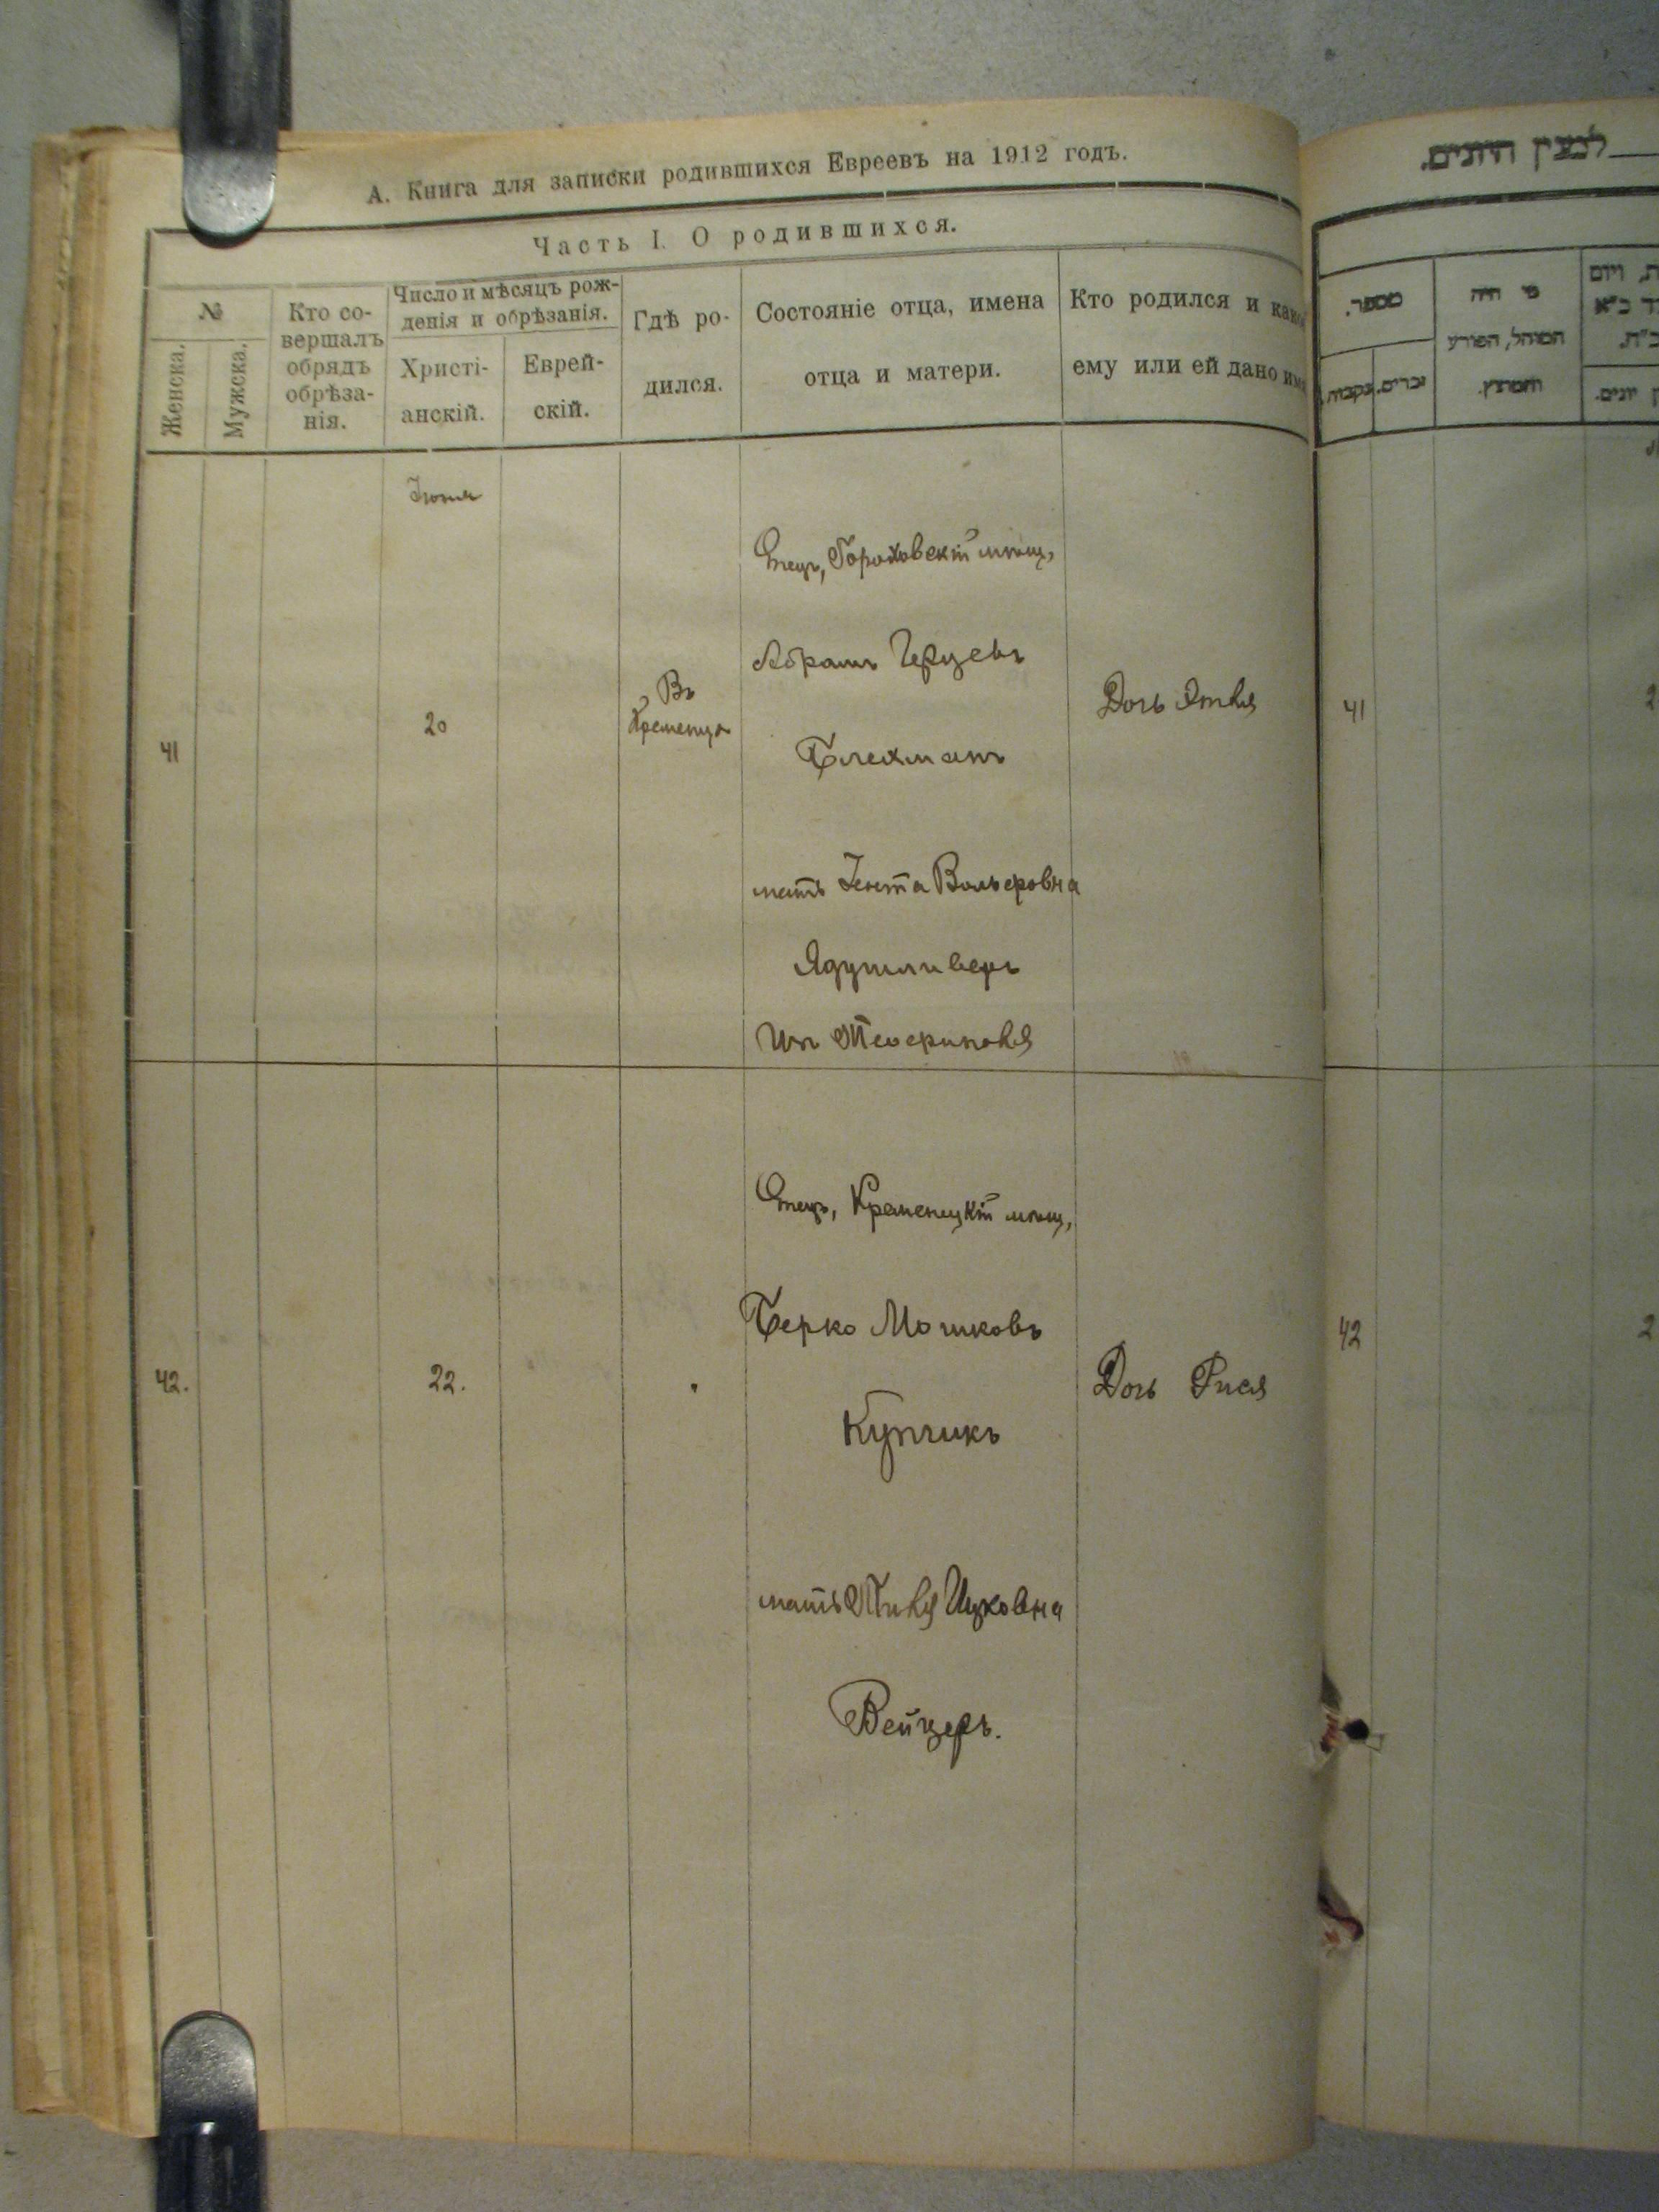 А. Книга для записки родившихся Евреевъ на 1912 годъ.
Часть I. О родившихся.
№
Женска.
Мужска.
Кто со-
вершалъ
обрядъ
обрѣза-
нія.
Число и мѣсяцъ рож-
денія и обрѣзанія.
Христі-
анскій.
Еврей-
скій.
Гдѣ ро-
дился.
Состояніе отца, имена
отца и матери.
Кто родился и какое
ему или ей дано имя
Іюня
41
20
Въ
Кременцѣ
Отецъ, Гороховскій мѣщ,
Абрамъ Герцевъ
Блехманъ
мать Јента Вольфовна
Ядушливеръ
Дочь Этля
42.
22.
Отецъ, Кременецкій мѣщ,
Берко Мошковъ
Купчикъ
мать Ицковна
Вейцеръ.
Дочь Рися
לבעצין היונים.
מספר.
זכרים.
נקבות.
מי היה
המוהל, הפורע
והמוצץ.
41
42